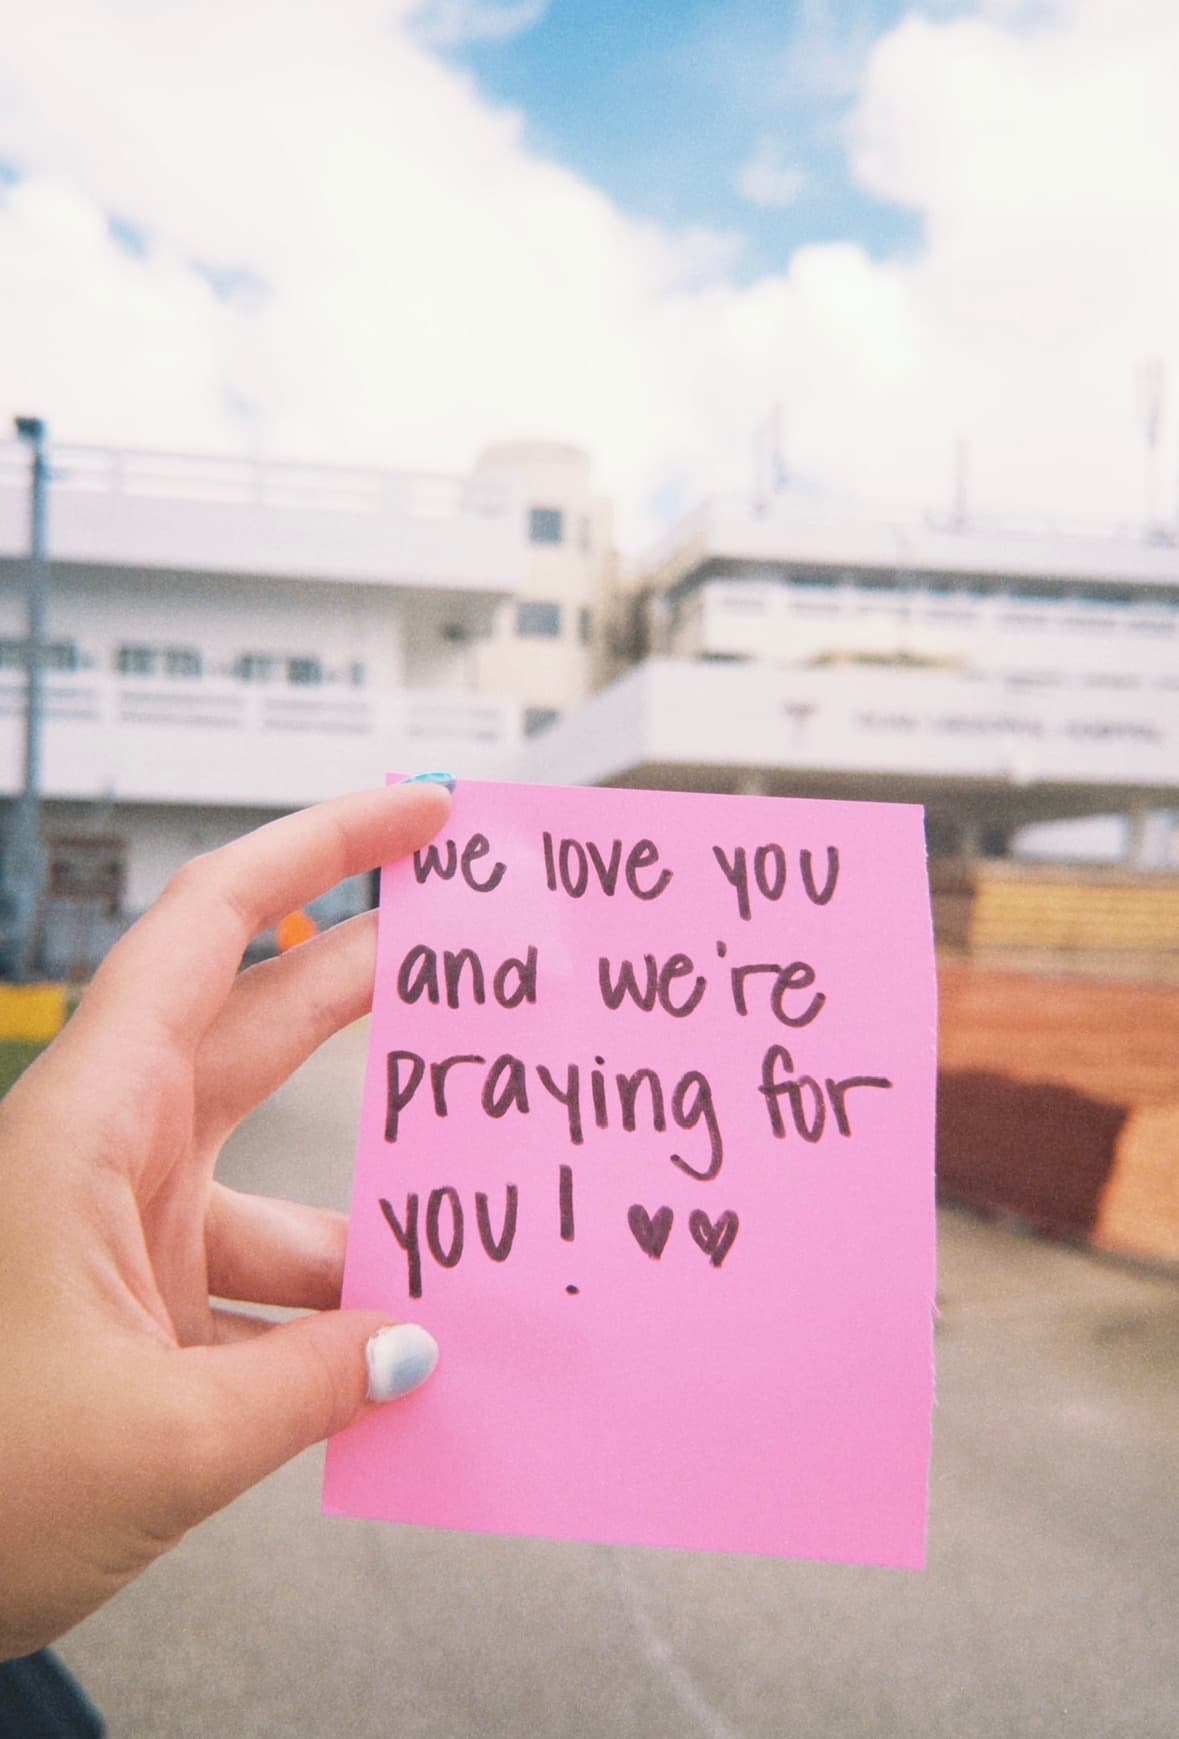 we love you
and we're
praying for
you! ♥♥